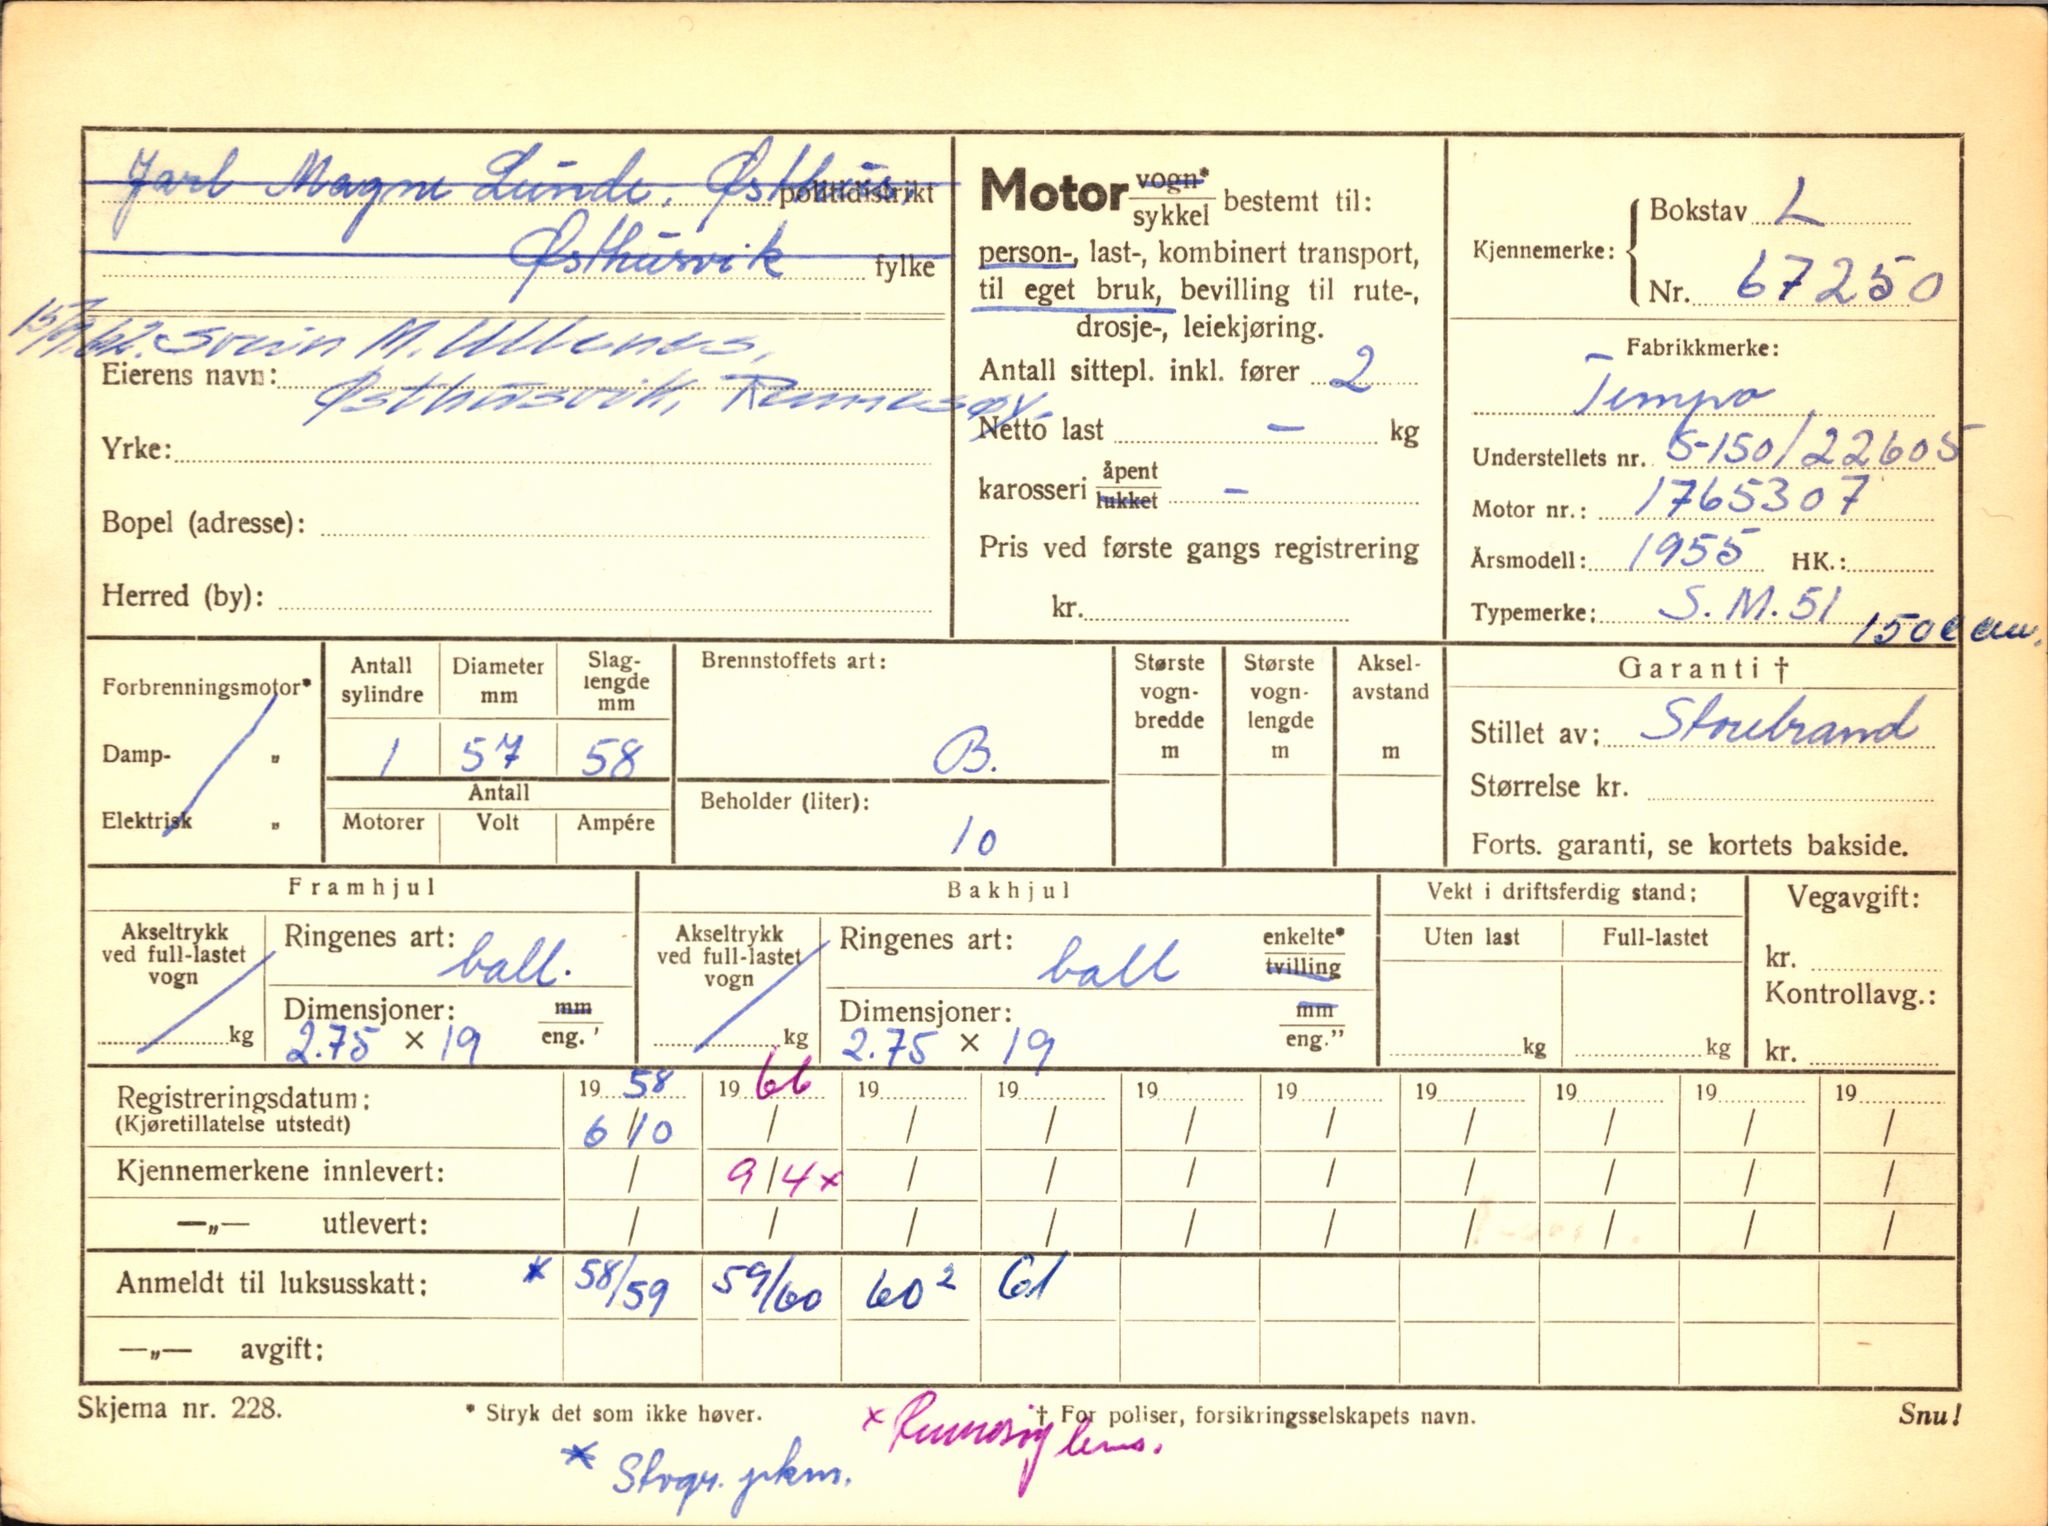 Jarl Magne Lunde, Østhus, politidistrikt
Østhusvik fylke
15/9.62. Svein M. Ullenes,
Eierens navn: Østhusvik, Rennesøy.
Yrke:
Bopel (adresse):
Herred (by):
Motor vogn* sykkel bestemt til:
person-, last-, kombinert transport,
til eget bruk, bevilling til rute-,
drosje-, leiekjøring.
Antall sittepl. inkl. fører 2
Netto last – kg
karosseri åpent lukket –
Pris ved første gangs registrering
kr.
Kjennemerke: Bokstav L
Nr. 67250
Fabrikkmerke:
Tempo
Understellets nr. S-150/22605
Motor nr.: 1765307
Årsmodell: 1955 HK.:
Typemerke: S.M.51
150 ccm.
Forbrenningsmotor*
Damp- „
Elektrisk „
Antall sylindre
Diameter mm
Slag-lengde mm
1 57 58
Antall
Motorer Volt Ampére
Brennstoffets art:
B.
Beholder (liter):
10
Største vogn-bredde m
Største vogn-lengde m
Aksel-avstand m
Garanti †
Stillet av: Storebrand
Størrelse kr.
Forts. garanti, se kortets bakside.
Framhjul
Akseltrykk ved full-lastet vogn
kg
Ringenes art: ball.
Dimensjoner: mm
2.75 × 19 eng.'
Bakhjul
Akseltrykk ved full-lastet vogn
kg
Ringenes art: ball enkelte* tvilling
Dimensjoner: mm
2.75 × 19 eng."
Vekt i driftsferdig stand:
Uten last Full-lastet
kg kg
Vegavgift:
kr.
Kontrollavg.:
kr.
Registreringsdatum: 19 58 19 66 19 19 19 19 19 19 19 19
(Kjøretillatelse utstedt) 6/10 / / / / / / / / /
Kjennemerkene innlevert: / 9/4 × / / / / / / / /
—„— utlevert: / / / / / / / / / /
Anmeldt til luksusskatt: * 58/59 59/60 60² 61
—„— avgift:
Skjema nr. 228. * Stryk det som ikke høver. † For poliser, forsikringsselskapets navn. Snu!
× Rennesøy lens.
* Stvgr. pkm.